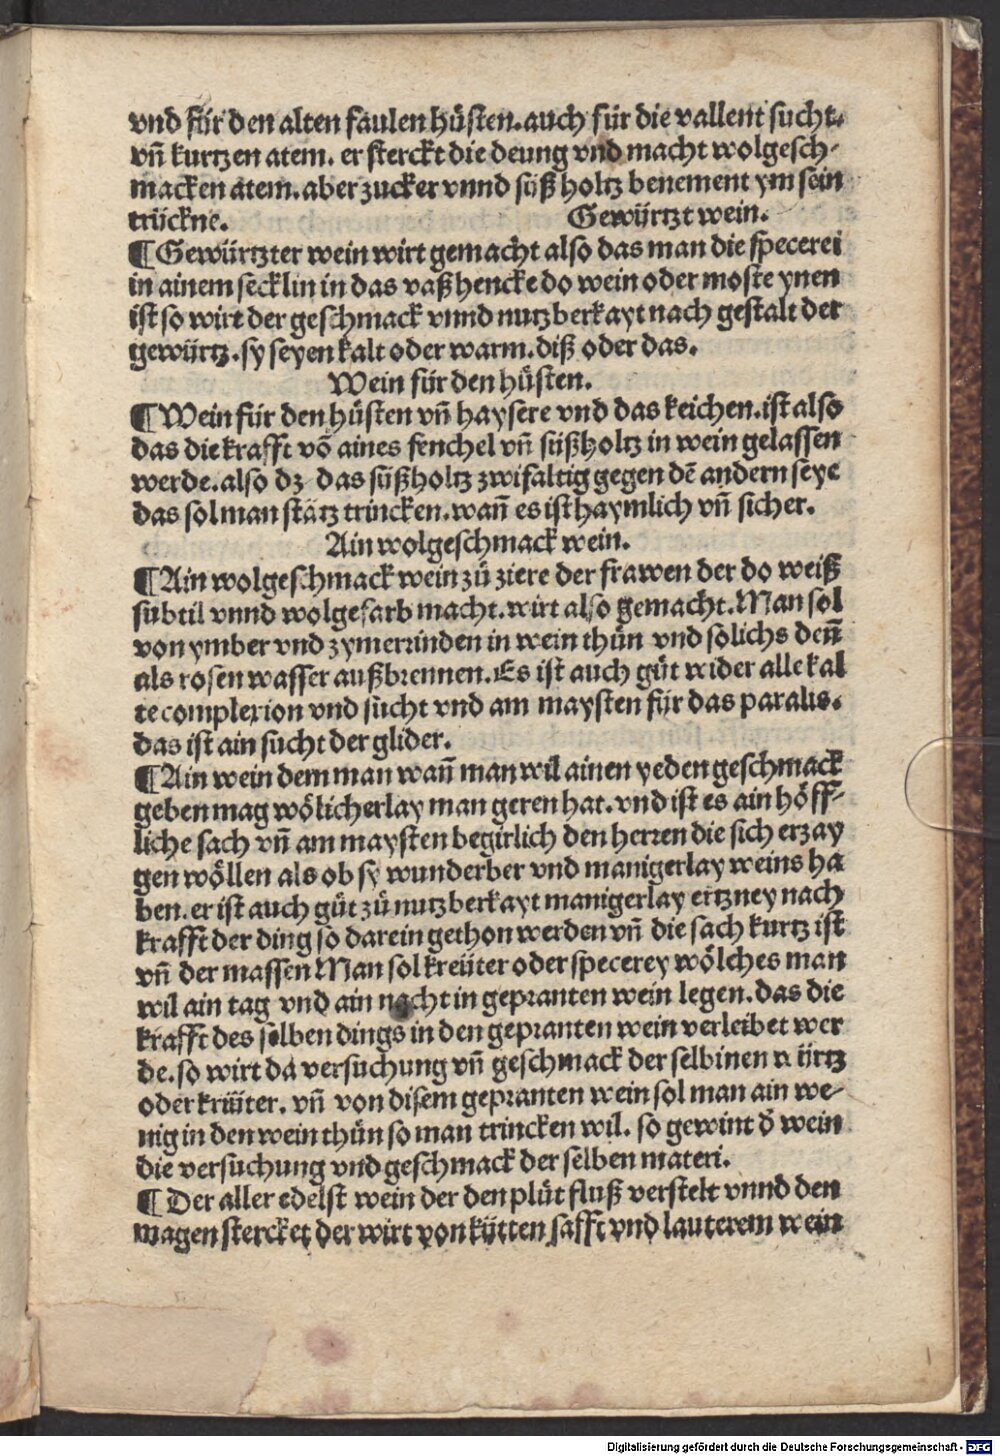 vnd für den alten faulen hůsten. auch für die vallent sucht.
vn̄ kurtzen atem. er sterckt die deung vnd macht wolgesch-
macken atem. aber zucker vnnd süßholtz benement ym sein
trückne. Gewürtzt wein.
¶ Gewürtzter wein wirt gemacht also das man die specerei
in ainem secklin in das vaß hencke do wein oder moste ynen
ist so wirt der geschmack vnnd nutzberkayt nach gestalt der
gewürtz. sy seyen kalt oder warm. diß oder das.
Wein für den hůsten.
¶ Wein für den hůsten vn̄ haysere vnd das keichen. ist also
das die krafft vō aines fenchel vn̄ süßholtz in wein gelassen
werde. also dz das süßholtz zwifaltig gegen dē andern seye
das sol man stätz trincken. wan̄ es ist haymlich vn̄ sicher.
Ain wolgeschmack wein.
¶ Ain wolgeschmack wein zů ziere der frawen der do weiß
subtil vnnd wolgefarb macht. wirt also gemacht. Man sol
von ymber vnd zymerrinden in wein thůn vnd solichs den̄
als rosen wasser außbrennen. Es ist auch gůt wider alle kal
te complexion vnd sucht vnd am maysten für das paralis.
das ist ain sucht der glider.
¶ Ain wein dem man wan̄ man wil ainen yeden geschmack
geben mag wölicherlay man geren hat. vnd ist es ain höff-
liche sach vn̄ am maysten begirlich den herren die sich erzay
gen wöllen als ob sy wunderber vnd manigerlay weins ha
ben. er ist auch gůt zů nutzberkayt manigerlay ertzney nach
krafft der ding so darein gethon werden vn̄ die sach kurtz ist
vn̄ der massen Man sol kreüter oder specerey wölches man
wil ain tag vnd ain nacht in gepranten wein legen. das die
krafft des selben dings in den gepranten wein verleibet wer
de. so wirt da versuchung vn̄ geschmack der selbinen würtz
oder krüüter. vn̄ von disem gepranten wein sol man ain we-
nig in den wein thůn so man trincken wil. so gewint d̄ wein
die versuchung vnd geschmack der selben materi.
¶ Der aller edelst wein der den plůt fluß verstelt vnnd den
magen stercket der wirt von kütten safft vnd lauterem wein
Digitalisierung gefördert durch die Deutsche Forschungsgemeinschaft - DFG